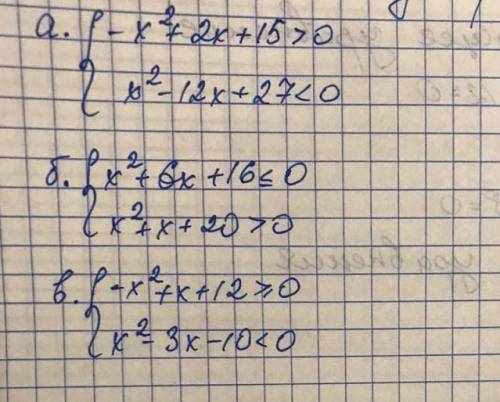 а. { -x²+2x+15>0
x²-12x+27<0
б. { x²+6x+16≤0
x²+x+20>0
в. { -x²+x+12≥0
x²-3x-10<0